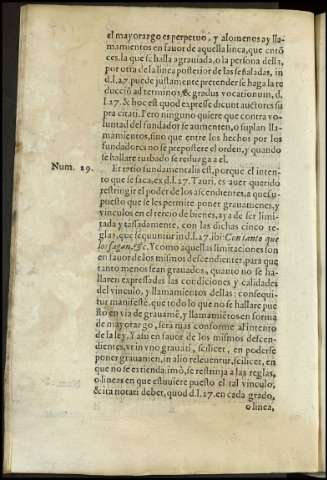 el mayorazgo es perpetuo, y alomenos ay lla-
mamientos en fauor de aquella linea, que entõ
ces, la que se halla agrauiada, o la persona della,
por otra de la linea posterior de las señaladas, in
d. l. 27. puede justamente pretender se haga la re
ducciõ ad terminos, & gradus vocationum, d.
l. 27. & hoc est quod expresse dicunt auctores su
pra citati. Pero ninguno quiere que contra vo-
luntad del fundador se aumenten, o suplan lla-
mamientos, sino que entre los hechos por los
fundadores no se prepostere el orden, y quando
se hallare turbado se reduzga a el.
Num. 29. Et ratio fundamentalis est, porque el inten-
to que se saca, ex d. l. 27. Tauri, es auer querido
restringir el poder de los ascendientes, a que su-
puesto que se les permite poner grauamenes, y
vinculos en el tercio de bienes, aya de ser limi-
tada y tassadamente, con las dichas cinco re-
glas, que sequuntur in d. l. 27. ibi: Con tanto que
los fagan, &c. Y como aquellas limitaciones son
en fauor de los mismos descendientes, para que
tanto menos sean grauados, quanto no se ha-
llaren expressadas las condiciones y calidades
del vinculo, y llamamientos dellas: consequi-
tur manifestè, que todo lo que no se hallare pue
sto en via de grauamẽ, y llamamiẽtos en forma
de mayorazgo, sera mas conforme al intento
de la ley. Y assi en fauor de los mismos descen-
dientes, vt in vno grauati, scilicet, en poderse
poner grauamen, in alio releuentur, scilicet, en
que no se extienda: imò, se restrinja a las reglas,
o lineas en que estuuiere puesto el tal vinculo,
& ita notari debet, quod d. l. 27. en cada grado,
o linea,